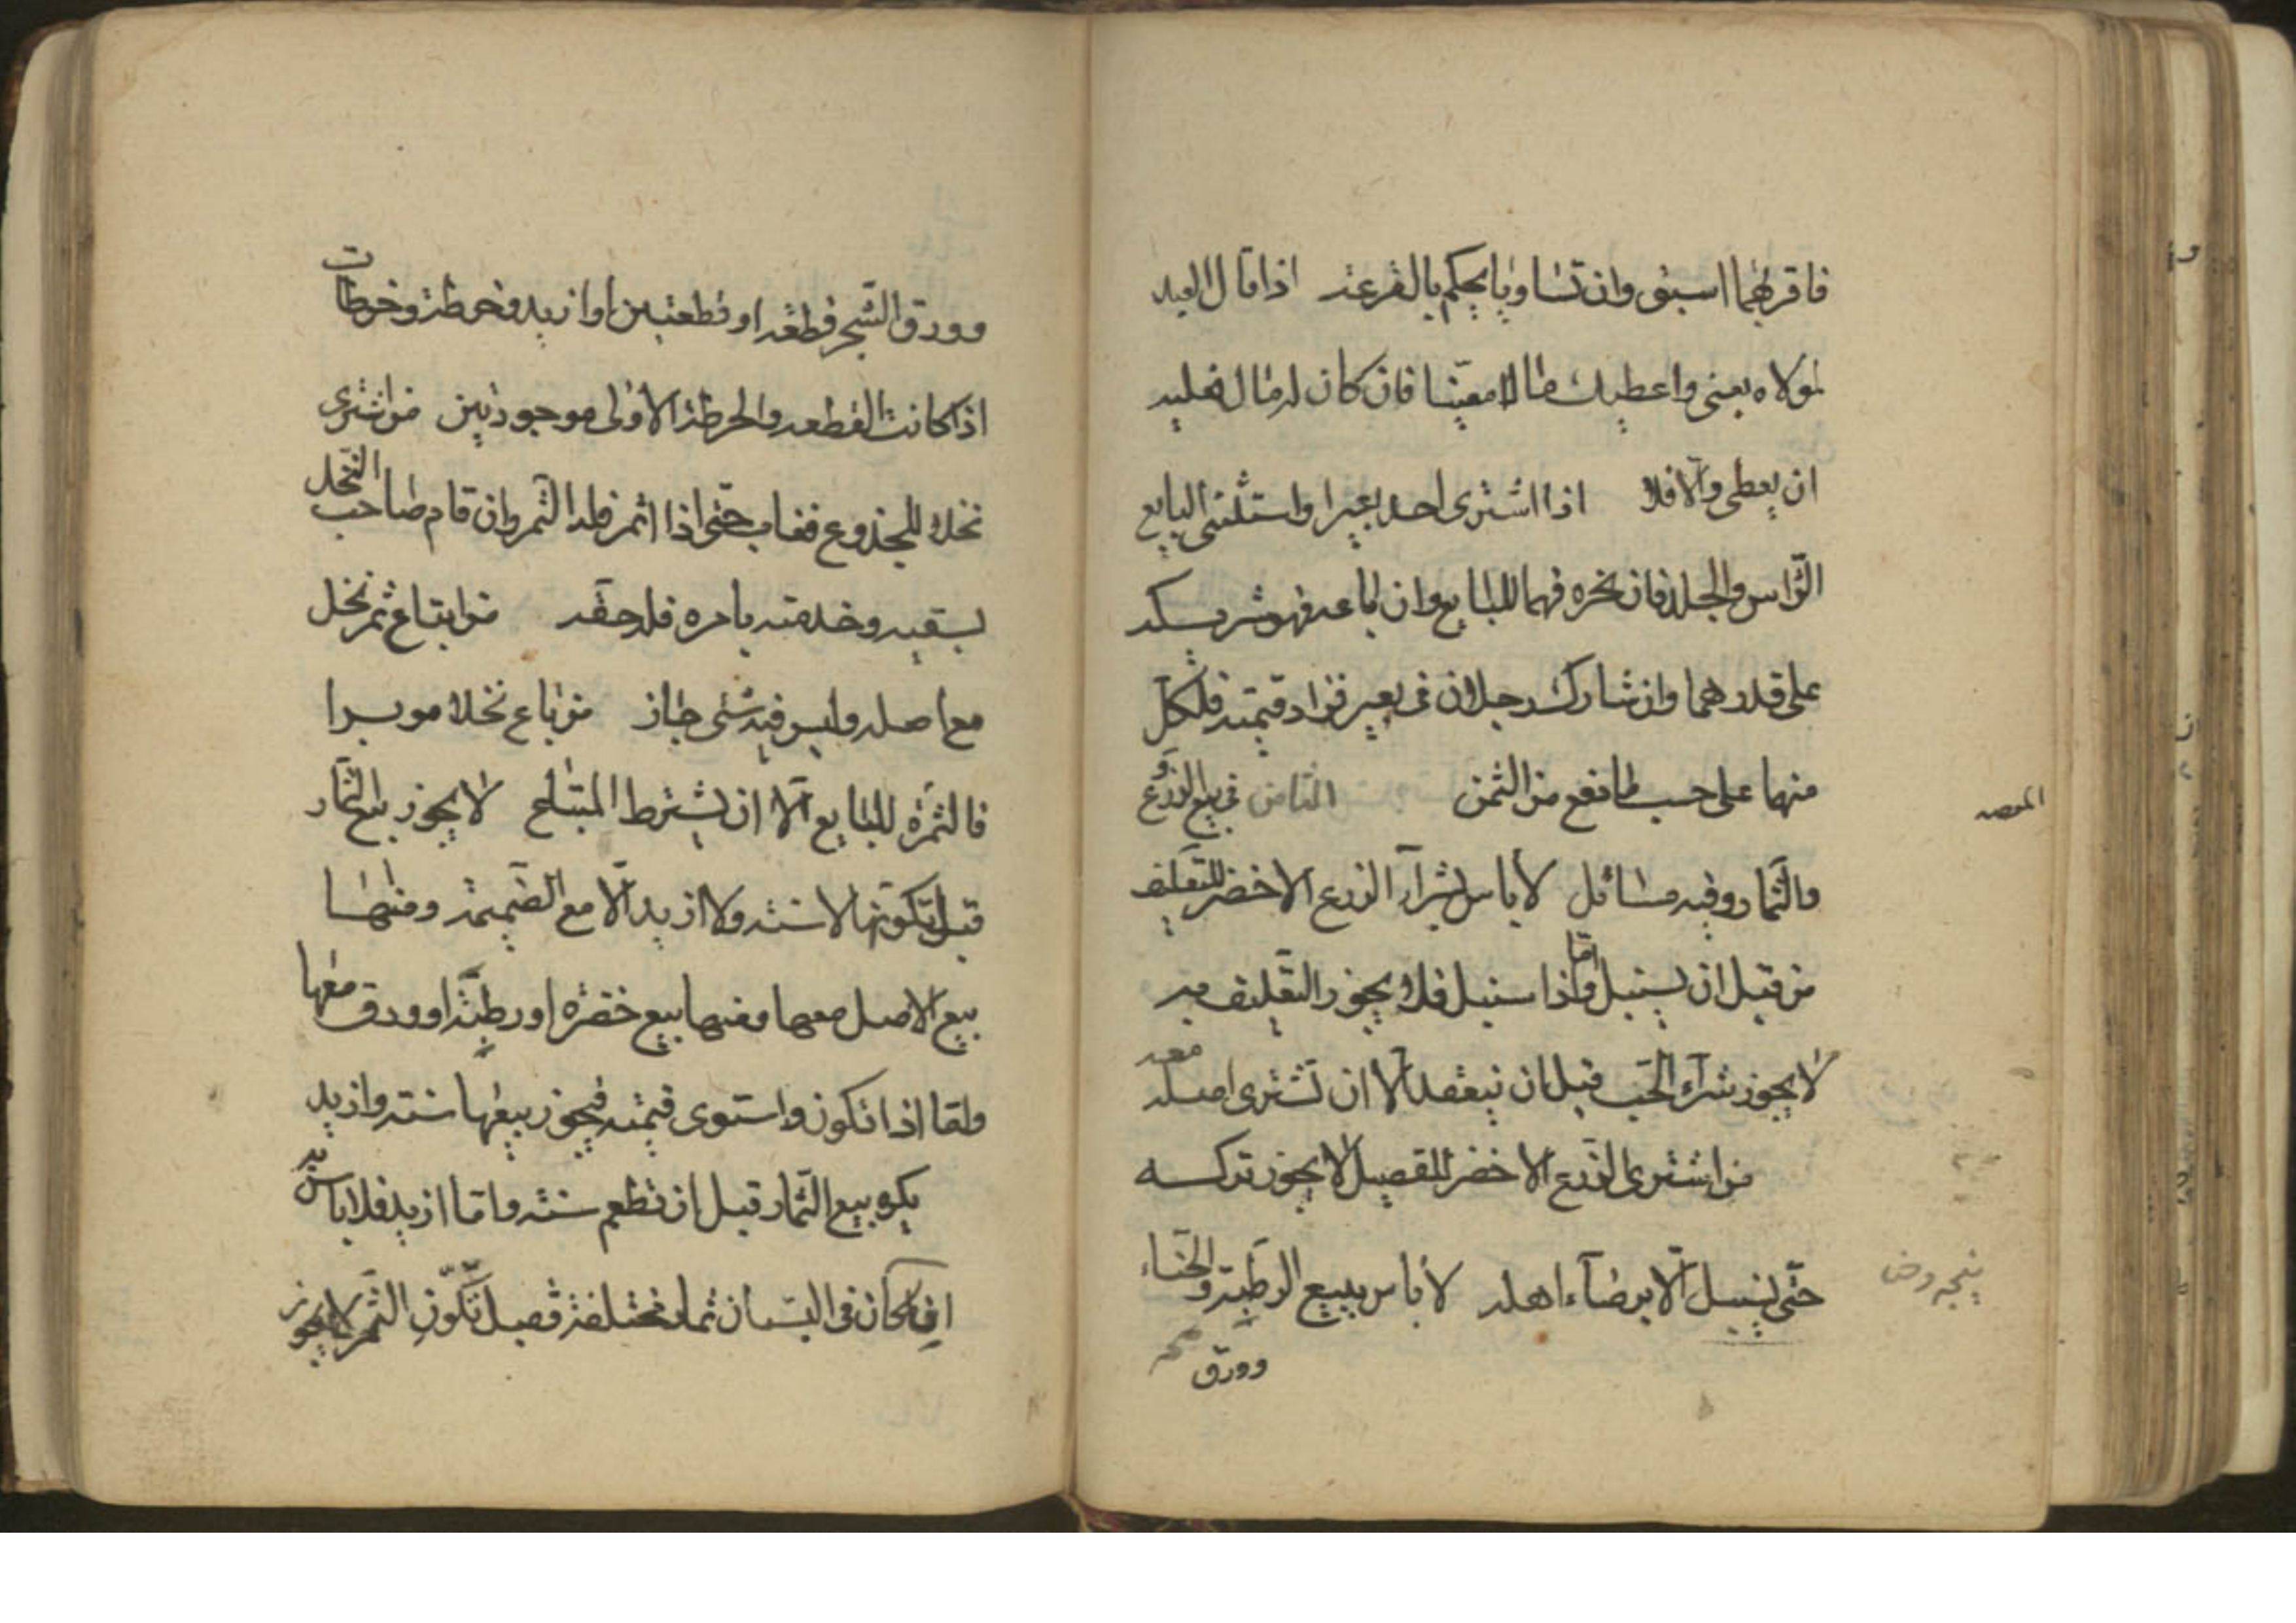 فاقربهما اسبق وان تساويا يحكم بالقرعة اذا قال العبد
لمولاه بعني واعطيك مالا معينا فان كان له مال فعليه
ان يعطي والا فلا اذا اشترى احد بعيرا واستثنى البايع
الراس والجلد فان نحره فهما للبايع وان باعه فهو شريكه
على قدرهما وان شارك رجلان في بعير فزاد قيمته فلكل
منهما على حسب ما نفع من الثمن الثامن في بيع الزروع
والثمار وفيه مسائل لا باس بشرآء الزرع الاخضر للتعليف
من قبل ان يسنبل واما اذا سنبل فلا يجوز التعليف به
لا يجوز شرآء الحب قبل ان ينعقد الا ان تشترى اصله معه
من اشترى الزرع الاخضر للقصيل لا يجوز تركه
حتى يسنبل الا برضآء اهله لا باس ببيع الرطبة والحناء
وورق
وورق الشجر قطعة او قطعتين او ازيد وخرطة وخرطات
اذا كانت القطعة والخرطة الاولى موجودتين من اشترى
نخلا للجذوع فغاب حتى اذا اثمر فله الثمر وان قام صاحب النخل
بسقيه وخدمته بامره فله حقه من ابتاع ثمر نخل
مع اصله وليس فيه شئ جاز من باع نخلا موبرا
فالثمرة للبايع الا ان يشترط المبتاع لا يجوز بيع الثمار
قبل تكونها لا سنة ولا ازيد الا مع الضميمة ومنها
بيع الاصل معها ومنها بيع خضرة او رطبة او ورق معها
واما اذا تكون واستوى قيمته فيجوز بيعها سنة وازيد
يكره بيع الثمار قبل ان تطعم سنة واما ازيد فلا باس به
اذا كان في البستان ثمار مختلفة فقبل تكون الثمر لا يجوز